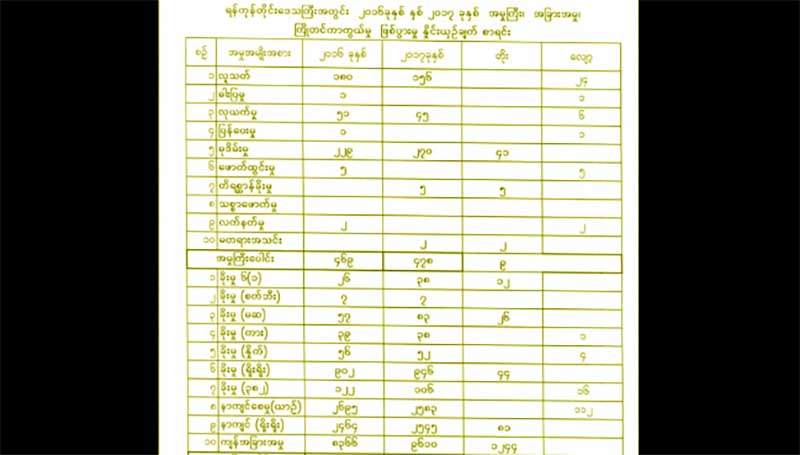 ရန်ကုန်တိုင်းဒေသကြီးအတွင်း ၂၀၁၆ခုနှစ် နှစ် ၂၀၁၇ ခုနှစ် အမှုကြီး၊ အခြားအမှု၊
ကြိုတင်ကာကွယ်မှု ဖြစ်ပွားမှု နှိုင်းယှဉ်ချက် စာရင်း
စဉ် အမှုအမျိုးအစား ၂၀၁၆ ခုနှစ် ၂၀၁၇ခုနှစ် တိုး လျော့
၁ လူသတ် ၁၈၀ ၁၅၆ ၂၄
၂ ဓါးပြမှု ၁ ၁
၃ လုယက်မှု ၅၁ ၄၅ ၆
၄ ပြန်ပေးမှု ၁ ၁
၅ မုဒိမ်းမှု ၂၂၉ ၂၇၀ ၄၁
၆ ဖောက်ထွင်းမှု ၅ ၅
၇ တိရစ္ဆာန်ခိုးမှု ၅ ၅
၈ သစ္စာဖောက်မှု
၉ လက်နက်မှု ၂ ၂
၁၀ မတရားအသင်း ၂ ၂
အမှုကြီးပေါင်း ၄၆၉ ၄၇၈ ၉
၁ ခိုးမှု ၆(၁) ၂၆ ၃၈ ၁၂
၂ ခိုးမှု (စက်ဘီး) ၇ ၇
၃ ခိုးမှု (မဆ) ၅၇ ၈၃ ၂၆
၄ ခိုးမှု (ကား) ၃၉ ၃၈ ၁
၅ ခိုးမှု (နှိုက်) ၅၆ ၅၂ ၄
၆ ခိုးမှု (ရိုးရိုး) ၉၀၂ ၉၄၆ ၄၄
၇ ခိုးမှု (၃၈၂) ၁၂၂ ၁၀၆ ၁၆
၈ နာကျင်စေမှု(ယာဉ်) ၂၆၉၅ ၂၅၈၃ ၁၁၂
၉ နာကျင် (ရိုးရိုး) ၂၄၆၄ ၂၅၄၅ ၈၁
၁၀ ကျန်အခြားအမှု ၈၃၆၆ ၉၆၁၀ ၁၂၄၄